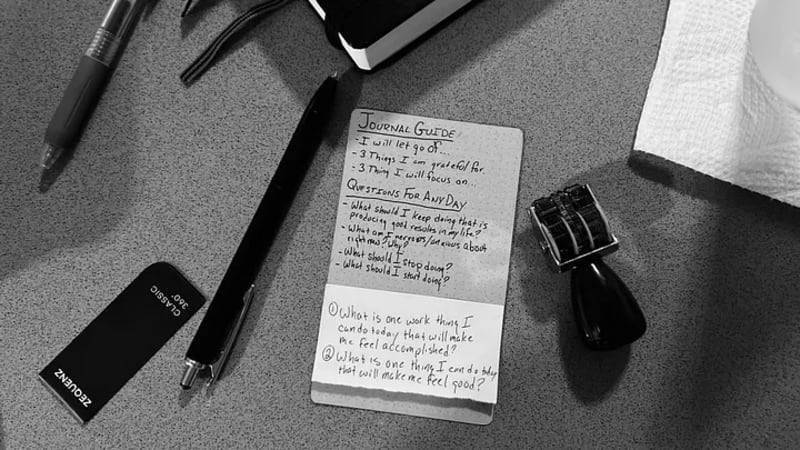 JOURNAL GUIDE
- I will let go of...
- 3 Things I am grateful for.
- 3 Thing I will focus on...
QUESTIONS FOR ANY DAY
- What should I keep doing that is
producing good results in my life?
- What am I nervous/anxious about
right now? Why?
- What should I stop doing?
- What should I start doing?
① What is one work thing I
can do today that will make
me feel accomplished?
② What is one thing I can do today
that will make me feel good?
CLASSIC
360°
ZEQUENZ